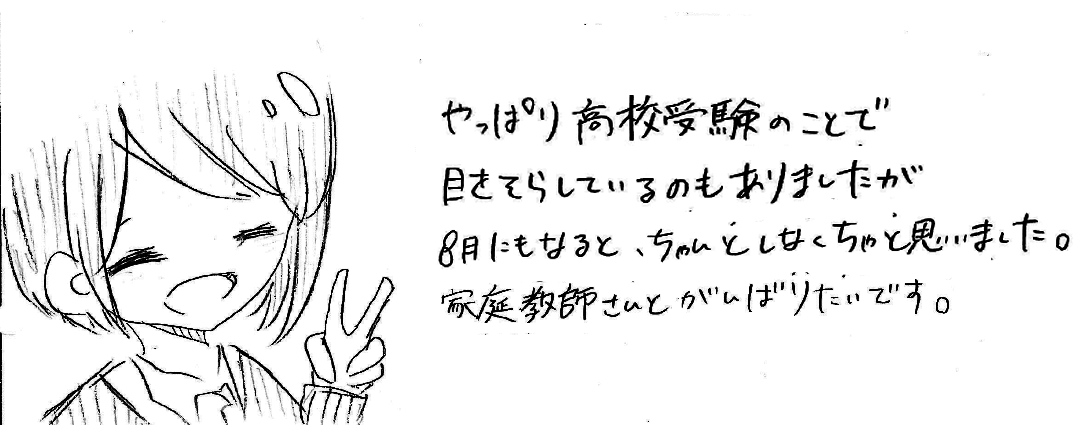 やっぱり高校受験のことで
目をそらしているのもありましたが
8月にもなると、ちゃんとしなくちゃと思いました。
家庭教師さんとがんばりたいです。